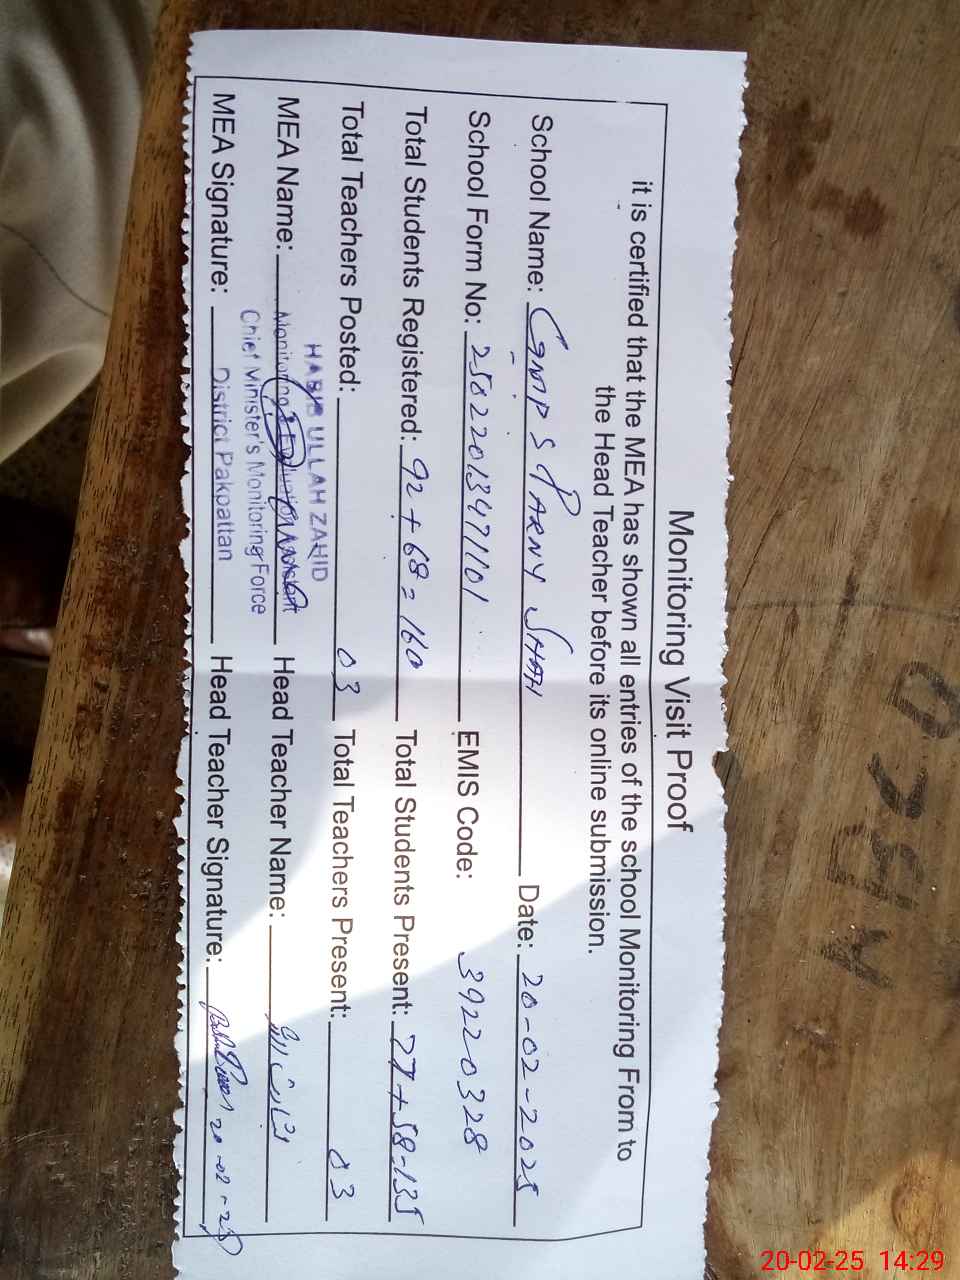 Monitoring Visit Proof
it is certified that the MEA has shown all entries of the school Monitoring From to
the Head Teacher before its online submission.
School Name: GMPS PARNY SHAH Date: 20-02-2025
School Form No: 25022013471101 EMIS Code: 39220328
Total Students Registered: 92 + 68 = 160 Total Students Present: 77 + 58 - 135
Total Teachers Posted: 03 Total Teachers Present: 03
HABIB ULLAH ZAHID
MEA Name: Monitoring & Evaluation Assistant Head Teacher Name:
Chief Minister's Monitoring Force
MEA Signature: District Pakpattan Head Teacher Signature: 20-02-25
20-02-25 14:29